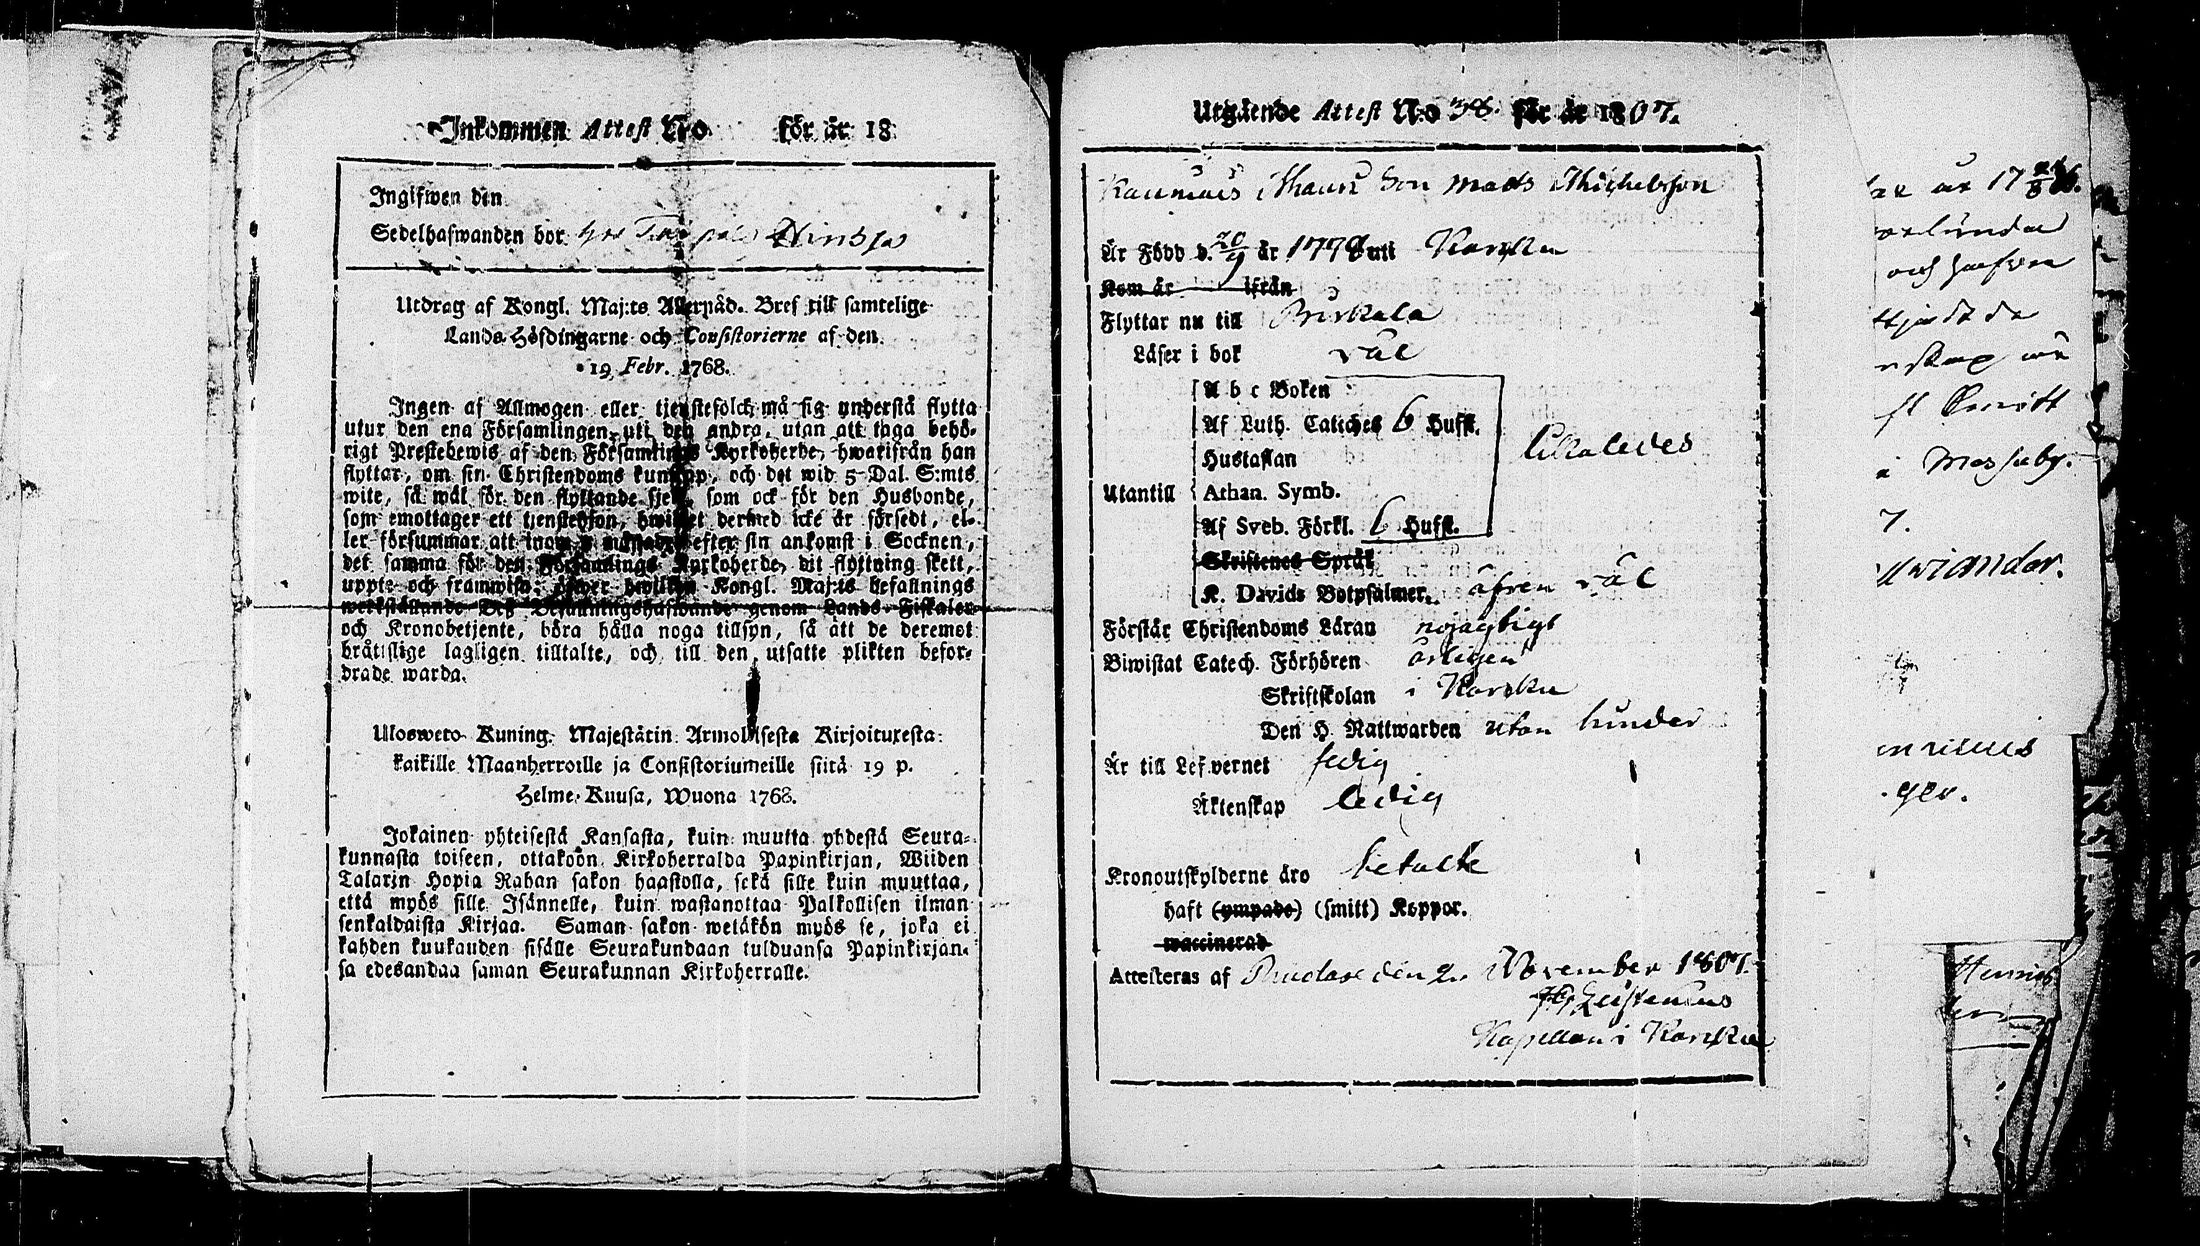 Inkommen Attest No för år 18
Ingifwen den
Sedelhafwanden bor hos
Utdrag af Kongl. Maj:ts Allernåd. Bref till samtelige
Lands-Höfdingarne och Consistorierne af den
19 Febr. 1768.
Ingen af Allmogen eller tjenstefolck må sig understå flytta
utur den ena Församlingen uti den andra, utan att taga behö-
rigt Prestebewis af den Församlings Kyrkoherde, hwarifrån han
flyttar, om sin Christendoms kunskap, och det wid 5 Dal. S:mts
wite, så wäl för den flyttande sjelf, som ock för den Husbonde,
som emottager ett tjenstehjon, hwilket dermed icke är försedt, el-
ler försummar att inom efter sin ankomst i Socknen,
det samma för den Församlings Kyrkoherde, dit flyttning skett,
uppte och framwisa; öfwer hwilken Kongl. Maj:ts befallnings
werkställande Dess Befallningshafwande genom Lands-Fiskaler
och Kronobetjente, böra hålla noga tillsyn, så ätt de deremot
bråttslige lagligen tilltalte, och till den utsatte plikten befor-
drade warda.
Ulosweto Kuning. Majestätin Armollisesta Kirjoituxesta
kaikille Maanherroille ja Consistoriumeille siitä 19 p.
Helme-Kuusa, Wuona 1768.
Jokainen yhteisestä Kansasta, kuin muutta yhdestä Seura-
kunnasta toiseen, ottakoon Kirkoherralda Papinkirjan, Wiiden
Talarin Hopia Rahan sakon haastolla, sekä sille kuin muuttaa,
että myös sille Isännelle, kuin wastanottaa Palkollisen ilman
senkaldaista Kirjaa. Saman sakon wetäkön myös se, joka ei
kahden kuukauden sisälle Seurakundaan tulduansa Papinkirjan-
sa edesandaa saman Seurakunnan Kirkoherralle.
Utgående Attest No 38. för år 1807.
Son Mats Michelsson
Är Född d. 20/9 år 1778 uti Karkku
Kom år ifrån
Flyttar nu till Pirkala
Läser i bok väl
A b c Boken
Af Luth. Cateches 6 Hufst.
Hustaflan
likaledes
Utantill Athan. Symb.
Af Sveb. Förkl. 6 Hufst.
Skriftenes Språk
K. Davids Botpsalmer. äfven väl
Förstår Christendoms Läran nöjagtigt
Biwistat Catech. Förhören årligen
Skriftskolan i Karkku
Den H. Nattwarden utan hinder
Är till Lefvernet fredig
Äktenskap ledig
Kronoutskylderne äro betalte
haft (ympade) (smitt) Koppor.
waccinerad
Attesteras af den 2 November 1807.
Kapellan i Karkku
år 17
och hafver
i Massuby.
7.